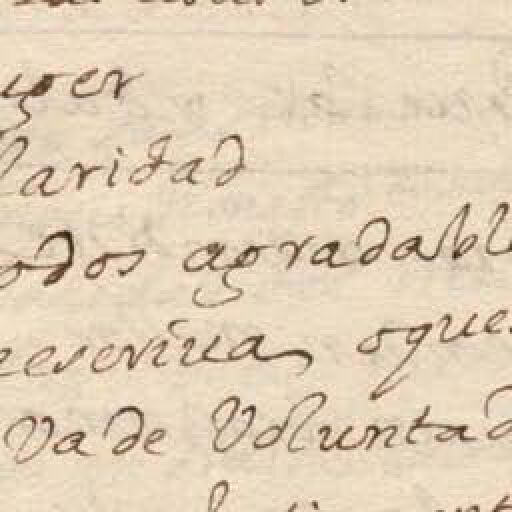 uger
laridad
odos agradabl
eescriua, oque
Va de Voluntad